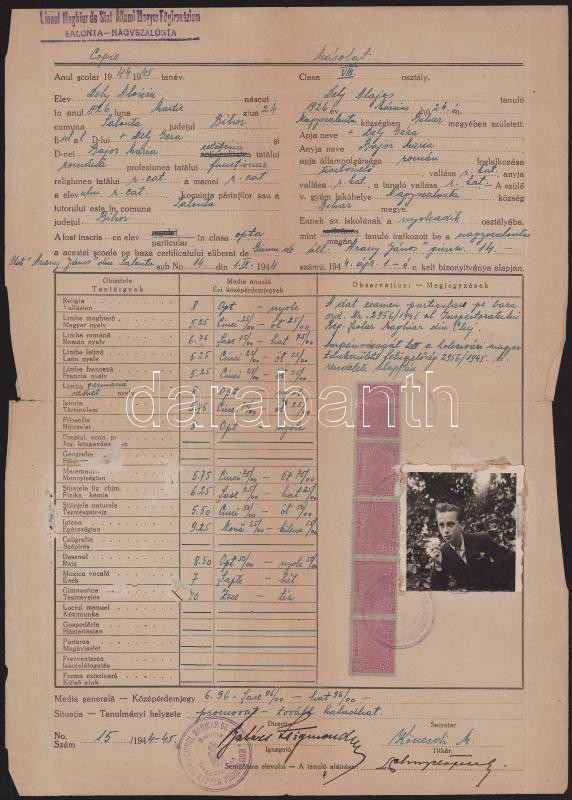 Liceul Maghiar de Stat Állami Magyar Főgimnázium
SALONTA-NAGYSZALONTA
Copie Másolat
Anul școlar 1944 1945 tanév. Clasa VIII. osztály.
Elev Dély Aloisiu născut Dély Alajos tanuló
în anul 1926 luna Martie ziua 24 1926 év Március hó 24-én
comuna Salonta județul Bihor Nagyszalonta községben Bihar megyében született.
fiul al D-lui + Dély Géza și Apja neve + Dély Géza
D-nei Bajor Mária cetățenia tatălui Anyja neve Bajor Mária
română profesiunea tatălui funcționar apja állampolgársága román foglalkozása
religiunea tatălui r. cat. a mamei r. cat. tisztviselő vallása r. kat. anyja
a elevului r. cat. Locuința părinților sau a vallása r. kat. a tanuló vallása r. kat. A szülő
tutorului este în comuna Salonta v. gyám lakóhelye Nagyszalonta község
județul Bihor Bihar megye.
Ennek az iskolának a nyolcadik osztályába,
A fost înscris ca elev particular în clasa opta mint magán tanuló iratkozott be a nagyszalontai
a acestei școale pe baza certificatului eliberat de Gimn. de áll. "Arany János" gimn. 14.
Stat "Arany János" din Salonta sub No. 14 din 1.IV. 1944 számú, 1944 ápr. 1-én kelt bizonyítványa alapján.
Obiectele Tantárgyak Media anuală Évi középérdemjegyek Observațiuni — Megjegyzések
Religia Vallástan 8 Opt — nyolc
Limba maghiară Magyar nyelv 5.25 Cinci 25/00 — öt 25/00
Limba română Román nyelv 6.75 Șase 75/00 — hat 75/00
Limba latină Latin nyelv 5.25 Cinci 25/00 — öt 25/00
Limba franceză Francia nyelv 5.25 Cinci 25/00 — öt 25/00
Limba germană német nyelv Opt — nyolc
Istoria Történelem 5.75 Cinci
Filosofia Bölcselet Opt nyolc
Dreptul, econ. p
Jog, közgazdaság
Geografia
Matematica Mennyiségtan 5.75 Cinci 75/00 — öt 75/00
Științele fiz. chim. Fizika kémia 6.25 Șase 25/00 — hat 25/00
Științele naturale Természetrajz 5.50 Cinci 50/00 — öt 50/00
Igiena Egészségtan 9.25 Nouă 25/00 — kilenc 25/00
Caligrafia Szépírás
Desenul Rajz 8.50 Opt 50/00 — nyolc 50/00
Muzica vocală Ének 7 Șapte — hét
Gimnastica Testnevelés 10 Zece — tíz
Lucrul manuel Kézimunka
Gospodăria Háztartástan
Purtarea Magaviselet
Frecventarea Iskolalátogatás
Forma exterioară Külső alak
A dat examen particular pe baza
ord. Nr. 2956/1945 al Inspectoratului
Reg. Școlar Maghiar din Cluj.
Magánvizsgát tett a kolozsvári magyar
tankerületi felügyelőség 2956/1945. sz.
rendelete alapján.
darabanth
Media generală — Középérdemjegy 6.96 — Șase 96/00 — hat 96/00 —
Situația — Tanulmányi helyzete — promovat — tovább haladhat.
No. Szám 15 /1944-45. Director Igazgató Secretar Titkár
Semnătura elevului — A tanuló aláírása: